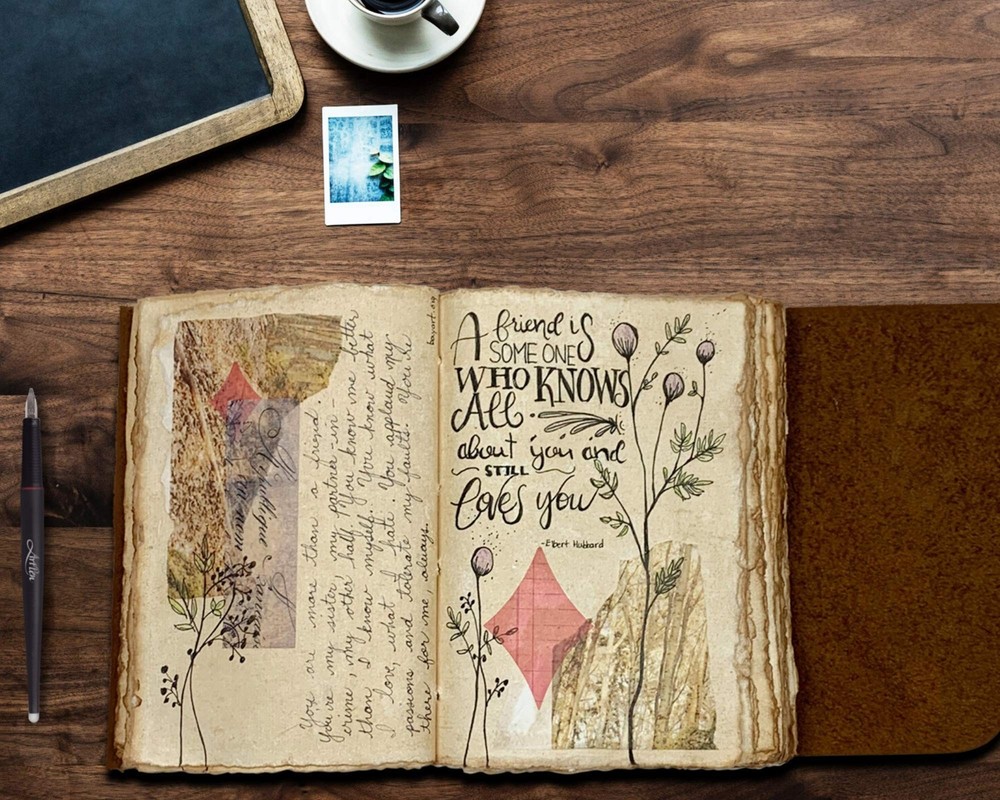 You are more than a friend
You're my sister, my partner-in-
crime, my other half. You know me better
than I know myself. You know what
I love, what I hate. You applaud my
passions and tolerate my faults. You're
there for me, always.
A friend is
SOME ONE
WHO KNOWS
All
about you and
STILL
loves you
-Elbert Hubbard